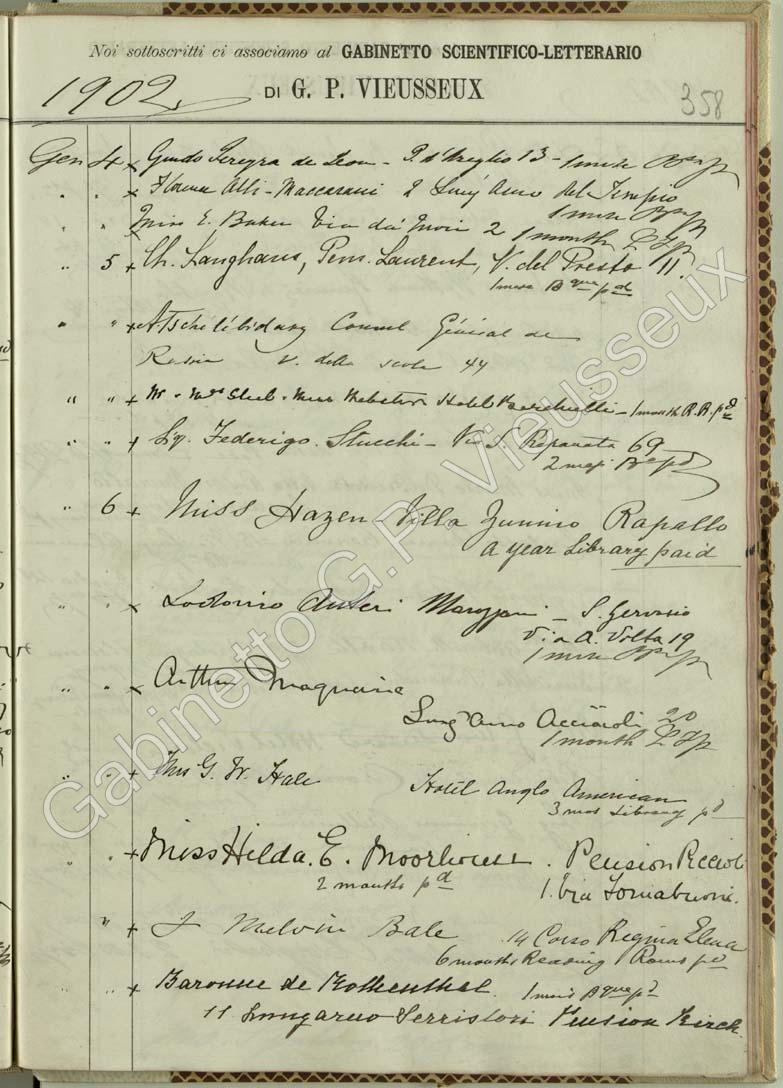 Noi sottoscritti ci associamo al GABINETTO SCIENTIFICO-LETTERARIO
1902.
DI G. P. VIEUSSEUX
358
Gen 4 x Guido de - P. d'Azeglio 13 - 1 mese
" " x Alli-Maccarani 2 Lung'Arno del Tempio
1 mese
" " x Miss E. Baker Via dei 2 1 month
" 5 x Ch. Langhans, Pens. Laurent, V. del Presto 11.
1 mese Bque pd
" " x Consul Général de
Russie V. della scala 44
" " x Mr. Mrs Miss Webster Hotel - 1 month R.R. pd
" " x Sig. Federigo Stucchi - Via S. Reparata 69
2 mesi pd
" 6 x Miss Hazen - Villa Rapallo
a year Library paid
" " x Lodovico Auteri - S. Gervasio
Via A. Volta 19
1 mese
" " x Arthur
Lung'Arno Acciaioli 20
1 month
" " x G. W. Hale
Hotel Anglo American
3 mos Library pd
" " x Miss Hilda. E. Moorhouse. Pension Riccioli
2 months pd 1. Via Tornabuoni.
" x J Melvin Bale 14 Corso Regina Elena
6 months Reading Rooms pd
" " x Baronne de Rothenthal. 1 mois Bque pd
11 Lungarno Serristori Pension Birck
Gabinetto G.P. Vieusseux